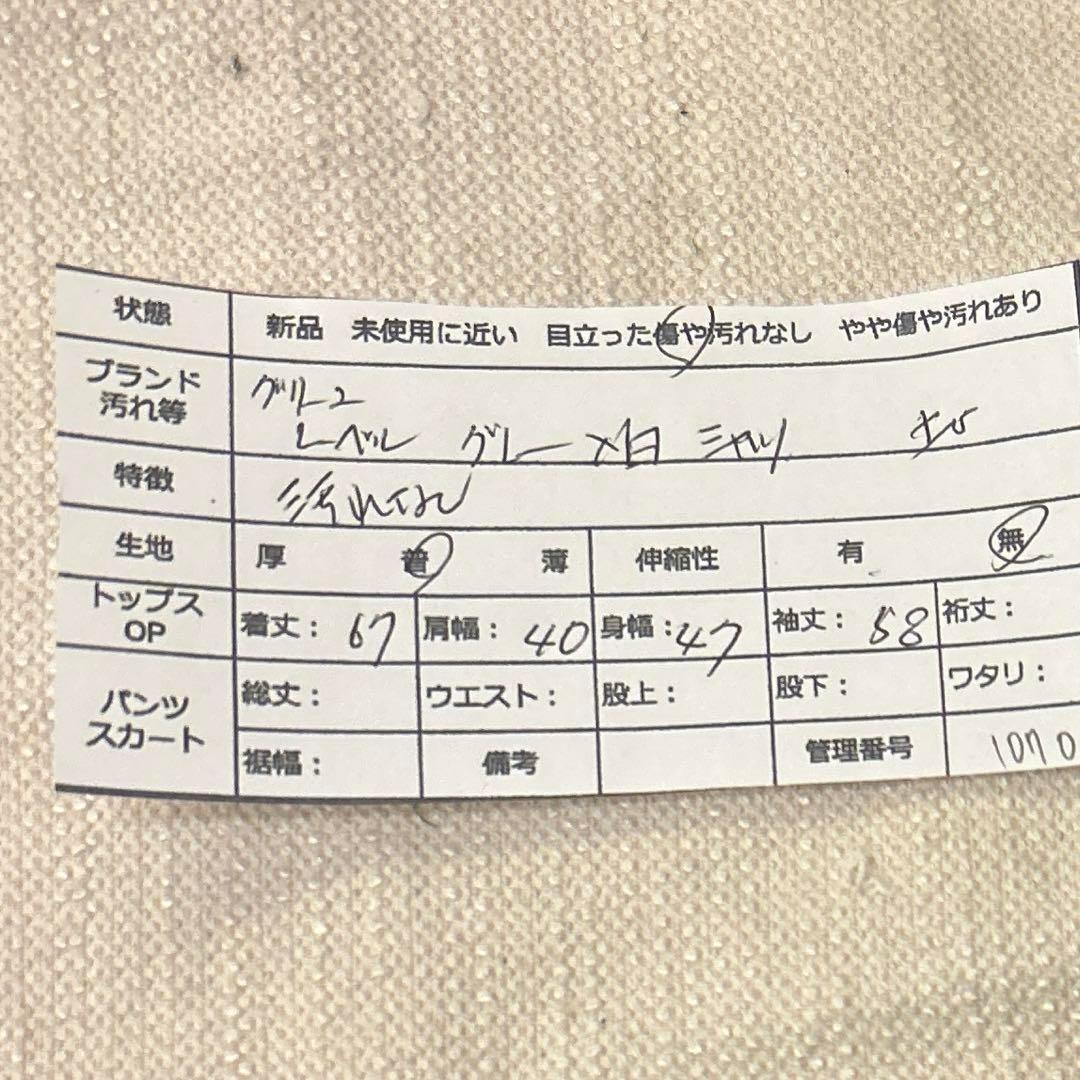 状態 新品 未使用に近い 目立った傷や汚れなし やや傷や汚れあり
ブランド
汚れ等
グリーン
レーベル グレー×白 シャツ
特徴 汚れなし
生地 厚 普 薄 伸縮性 有 無
トップス
OP
着丈: 67 肩幅: 40 身幅: 47 袖丈: 58 裄丈:
パンツ
スカート
総丈: ウエスト: 股上: 股下: ワタリ:
裾幅: 備考 管理番号 1070